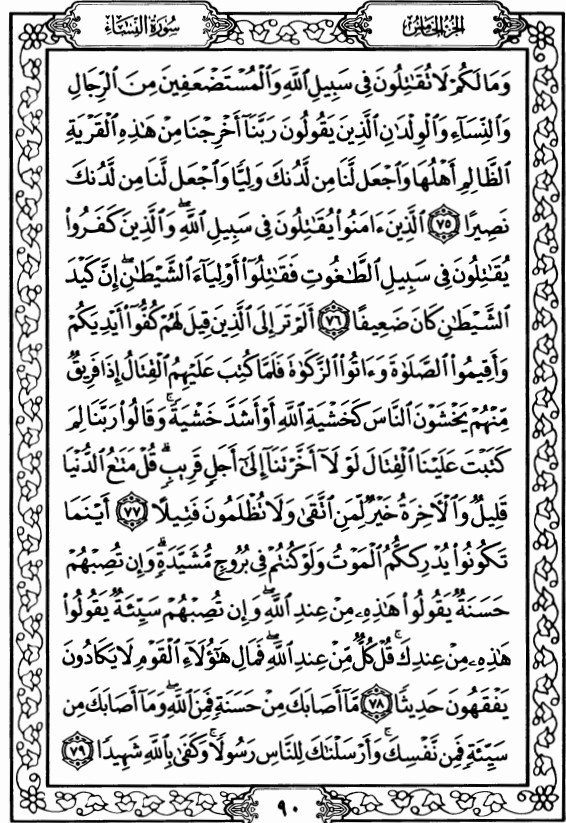 سُورَةُ النِّسَاءِ
الجُزْءُ الخَامِسُ
وَمَا لَكُمْ لَا تُقَٰتِلُونَ فِى سَبِيلِ ٱللَّهِ وَٱلْمُسْتَضْعَفِينَ مِنَ ٱلرِّجَالِ
وَٱلنِّسَآءِ وَٱلْوِلْدَٰنِ ٱلَّذِينَ يَقُولُونَ رَبَّنَآ أَخْرِجْنَا مِنْ هَٰذِهِ ٱلْقَرْيَةِ
ٱلظَّالِمِ أَهْلُهَا وَٱجْعَل لَّنَا مِن لَّدُنكَ وَلِيًّا وَٱجْعَل لَّنَا مِن لَّدُنكَ
نَصِيرًا ٧٥ ٱلَّذِينَ ءَامَنُوا۟ يُقَٰتِلُونَ فِى سَبِيلِ ٱللَّهِ ۖ وَٱلَّذِينَ كَفَرُوا۟
يُقَٰتِلُونَ فِى سَبِيلِ ٱلطَّٰغُوتِ فَقَٰتِلُوٓا۟ أَوْلِيَآءَ ٱلشَّيْطَٰنِ ۖ إِنَّ كَيْدَ
ٱلشَّيْطَٰنِ كَانَ ضَعِيفًا ٧٦ أَلَمْ تَرَ إِلَى ٱلَّذِينَ قِيلَ لَهُمْ كُفُّوٓا۟ أَيْدِيَكُمْ
وَأَقِيمُوا۟ ٱلصَّلَوٰةَ وَءَاتُوا۟ ٱلزَّكَوٰةَ فَلَمَّا كُتِبَ عَلَيْهِمُ ٱلْقِتَالُ إِذَا فَرِيقٌ
مِّنْهُمْ يَخْشَوْنَ ٱلنَّاسَ كَخَشْيَةِ ٱللَّهِ أَوْ أَشَدَّ خَشْيَةً ۚ وَقَالُوا۟ رَبَّنَا لِمَ
كَتَبْتَ عَلَيْنَا ٱلْقِتَالَ لَوْلَآ أَخَّرْتَنَآ إِلَىٰٓ أَجَلٍ قَرِيبٍ ۗ قُلْ مَتَٰعُ ٱلدُّنْيَا
قَلِيلٌ وَٱلْءَاخِرَةُ خَيْرٌ لِّمَنِ ٱتَّقَىٰ وَلَا تُظْلَمُونَ فَتِيلًا ٧٧ أَيْنَمَا
تَكُونُوا۟ يُدْرِككُّمُ ٱلْمَوْتُ وَلَوْ كُنتُمْ فِى بُرُوجٍ مُّشَيَّدَةٍ ۗ وَإِن تُصِبْهُمْ
حَسَنَةٌ يَقُولُوا۟ هَٰذِهِۦ مِنْ عِندِ ٱللَّهِ ۖ وَإِن تُصِبْهُمْ سَيِّئَةٌ يَقُولُوا۟
هَٰذِهِۦ مِنْ عِندِكَ ۚ قُلْ كُلٌّ مِّنْ عِندِ ٱللَّهِ ۖ فَمَالِ هَٰٓؤُلَآءِ ٱلْقَوْمِ لَا يَكَادُونَ
يَفْقَهُونَ حَدِيثًا ٧٨ مَّآ أَصَابَكَ مِنْ حَسَنَةٍ فَمِنَ ٱللَّهِ ۖ وَمَآ أَصَابَكَ مِن
سَيِّئَةٍ فَمِن نَّفْسِكَ ۚ وَأَرْسَلْنَٰكَ لِلنَّاسِ رَسُولًا ۚ وَكَفَىٰ بِٱللَّهِ شَهِيدًا ٧٩
٩٠